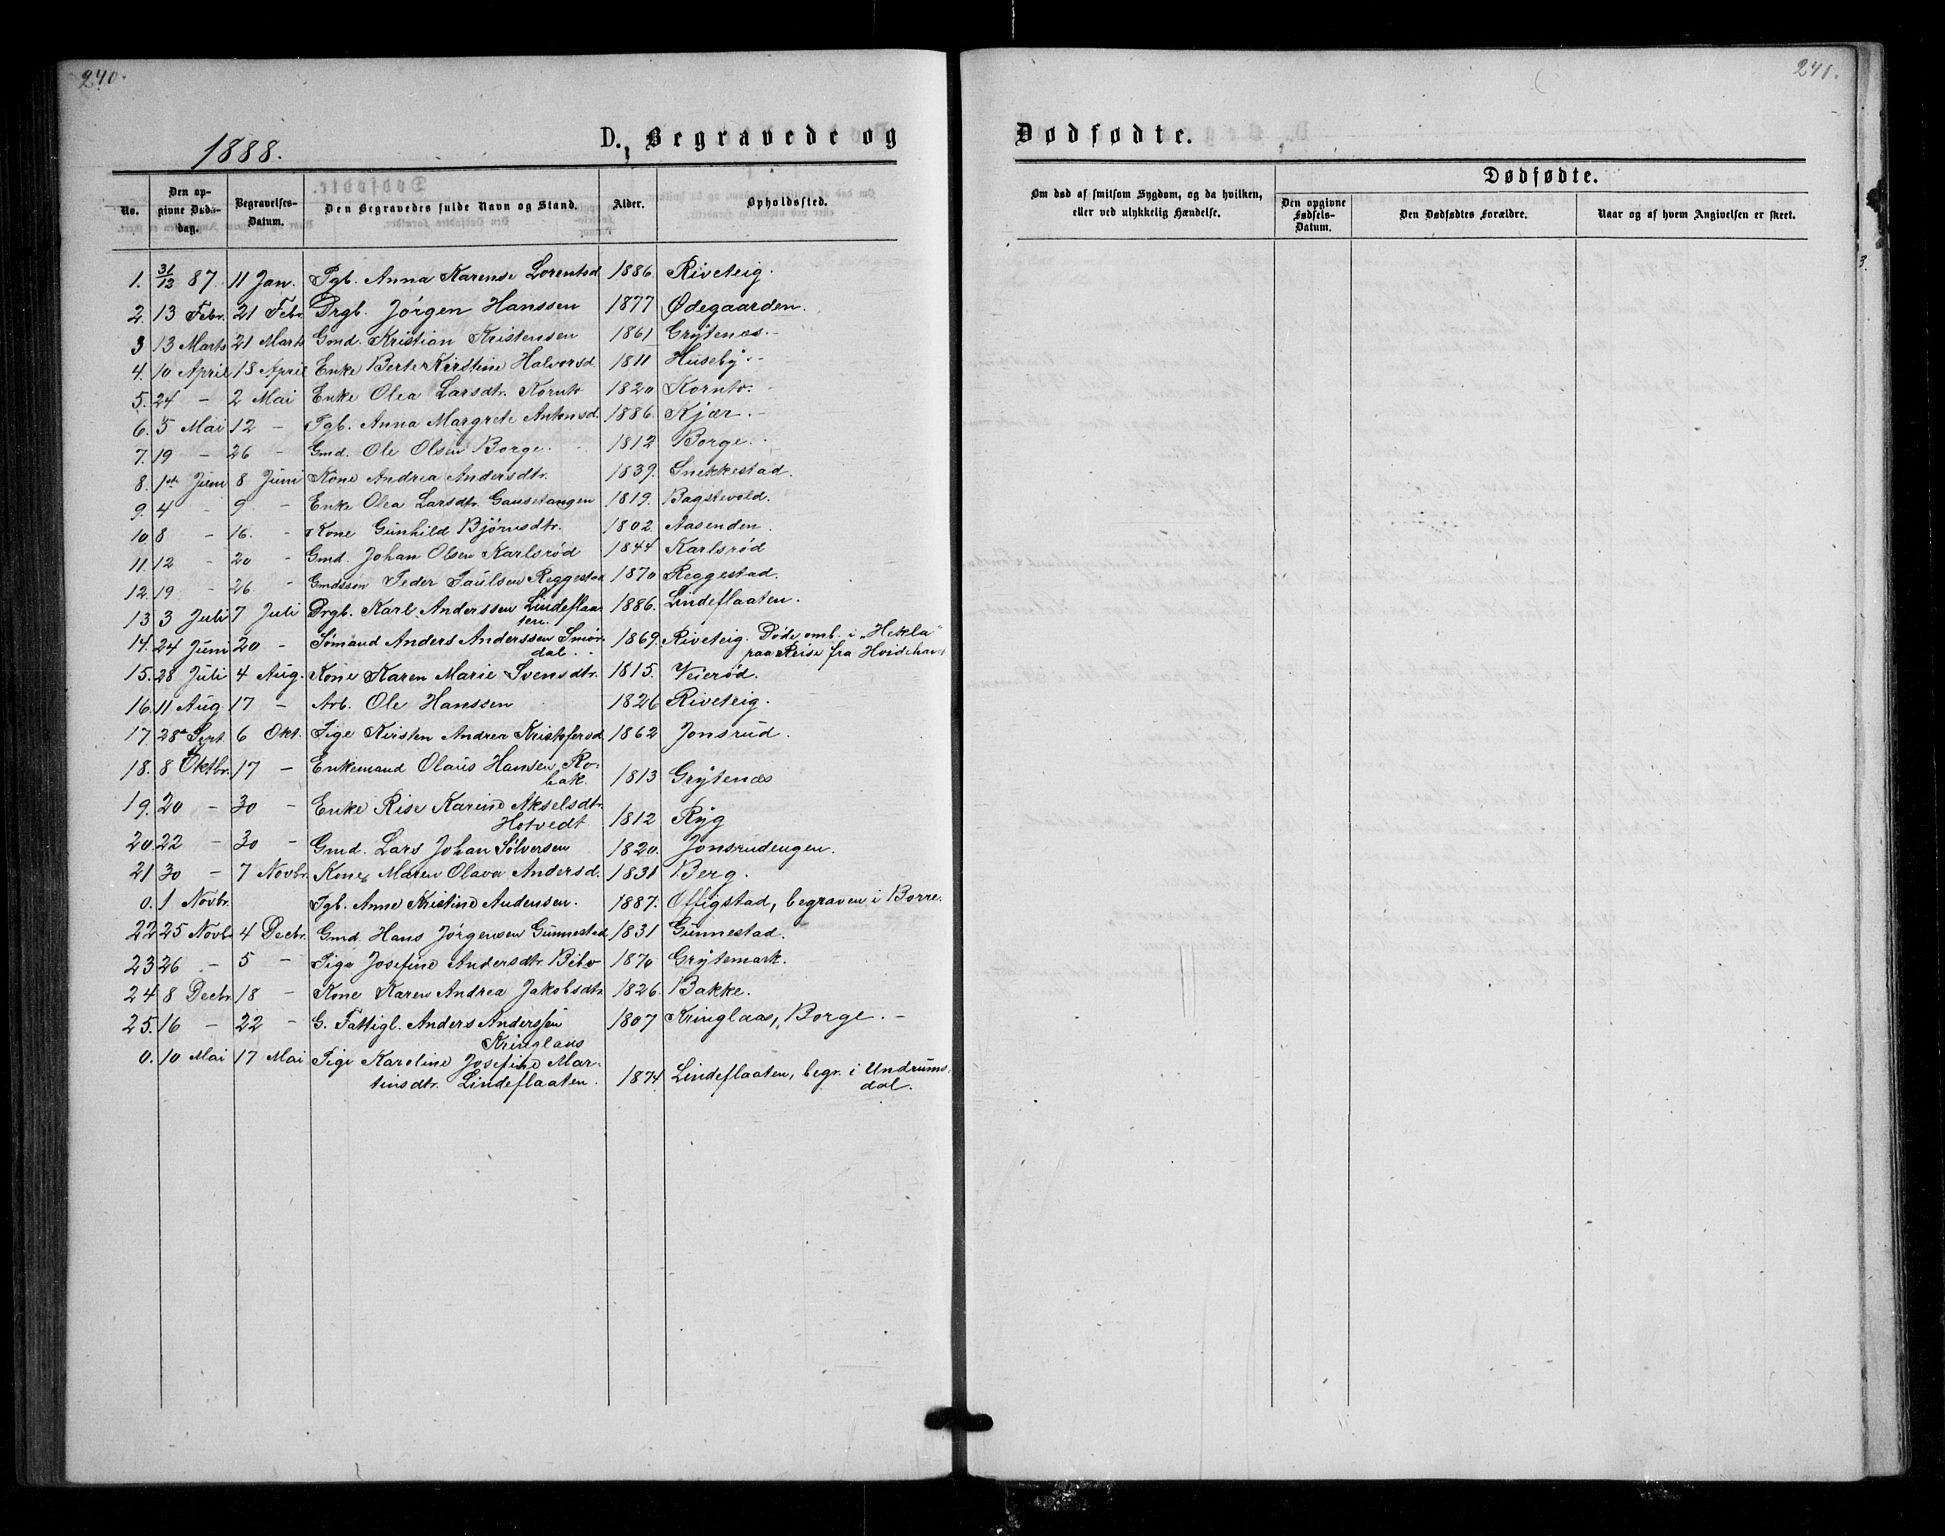 240.
1888.
D. Begravede og
No.
Den opgivne Dødsdag.
Begravelses-Datum.
Den Begravedes fulde Navn og Stand.
Alder.
Opholdssted.
1. 31/12 87. 11 Jan. Pgb. Anna Karense Lorentsd. 1886. Riveteig.
2. 13 Febr. 21 Febr Drgb. Jörgen Hanssen 1877 Ødegaarden.
3 13 Marts 21 Marts Gmd. Kristian Kristensen 1861 Grÿtenæs.-
4. 10 April 18 April Enke Berte Kirstine Halvorsd. 1811 Huseby.-
5. 24 - 2 Mai Enke Olea Larsdtr. Kornto 1820 Kornto.-
6. 5 Mai 12 - Pgb. Anna Margrete Antonsd. 1886. Kjær.-
7. 19 - 26 - Gmd. Ole Olsen Borge. 1812 Borge.
8. 1ste Juni 8 Juni Kone Andrea Andersdtr. 1839. Snekkestad.
9. 4 - 9 - Enke Olea Larsdtr. Gausetangen 1819. Bagstevold.
10 8 - 16. - Kone Gunhild Bjørnsdtr. 1802. Aasenden.
11. 12 - 20 - Gmd. Johan Olsen Karlsrød 1844 Karlsrød
12. 19 - 26. - Gmdssøn Peder Paulsen Reggestad 1870 Reggestad.
13 3 Juli 7 Juli Drgb. Karl Anderssen Lindeflaa-
ten. 1886. Lindeflaaten.
14. 24 Juni 20 - Sömand Anders Anderssen Smör- 1869. Riveteig. Døde omb. i "Hekla"
dal. paa Reise fra Hvidehavet
15. 28 Juli 4 Aug. Kone Karen Marie Svensdtr. 1815. Veierød.
16. 11 Aug. 17 - Arb. Ole Hanssen 1826 Riveteig.
17. 28 Sept. 6 Okt. Pige Kirsten Andrea Kristofersd. 1862 Jonsrud.
18. 8 Oktbr. 17 - Enkemand Olaus Hansen Ro-
bak. 1813 Grÿtenæs
19. 20 - 30 - Enke Rise Karine Akselsdtr.
Hotvedt 1812 Ryg
20. 22 - 30 - Gmd. Lars Johan Sölversen 1820. Jonsrudengen.
21 30 - 7 Novbr. Kone Maren Olava Andersd. 1831 Berg.
0. 1 Novbr. Pgb. Anne Kristine Audensen. 1887. Offigstad, begraven i Borre.
22 25 Novbr 4 Decbr. Gmd. Hans Jörgensen Gunnestad 1831 Gunnestad.
23 26 - 5 - Pige Josefine Andersdtr. Bibo 1870 Grÿtemark.
24 8 Decbr. 18 - Kone Karen Andrea Jakobsdtr. 1826. Bakke.
25. 16 - 22 - G. Fattigl. Anders Anderssen
Kringlaas 1807 Kringlaas, Borge.-
0. 10 Mai 17 Mai Pige Karoline Josefine Mar-
tinsdtr. Lindeflaaten. 1874 Lindeflaaten, begr. i Undrums-
dal.
241.
Dødfødte.
Om død af smitsom Sygdom, og da hvilken, eller ved ulykkelig Hændelse.
Dødfødte.
Den opgivne Fødsels-Datum.
Den Dødfødtes Forældre.
Naar og af hvem Angivelsen er skeet.